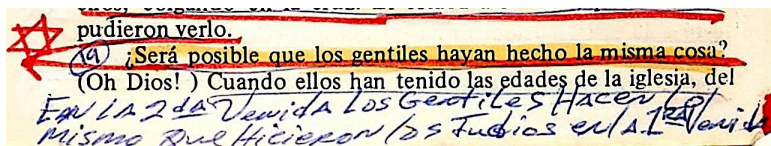 pudieron verlo.
19 ¿Será posible que los gentiles hayan hecho la misma cosa?
(Oh Dios! ) Cuando ellos han tenido las edades de la iglesia, del
EN LA 2da Venida Los Gentiles Hacen Lo
mismo que Hicieron los Judios en LA 1ra Venida